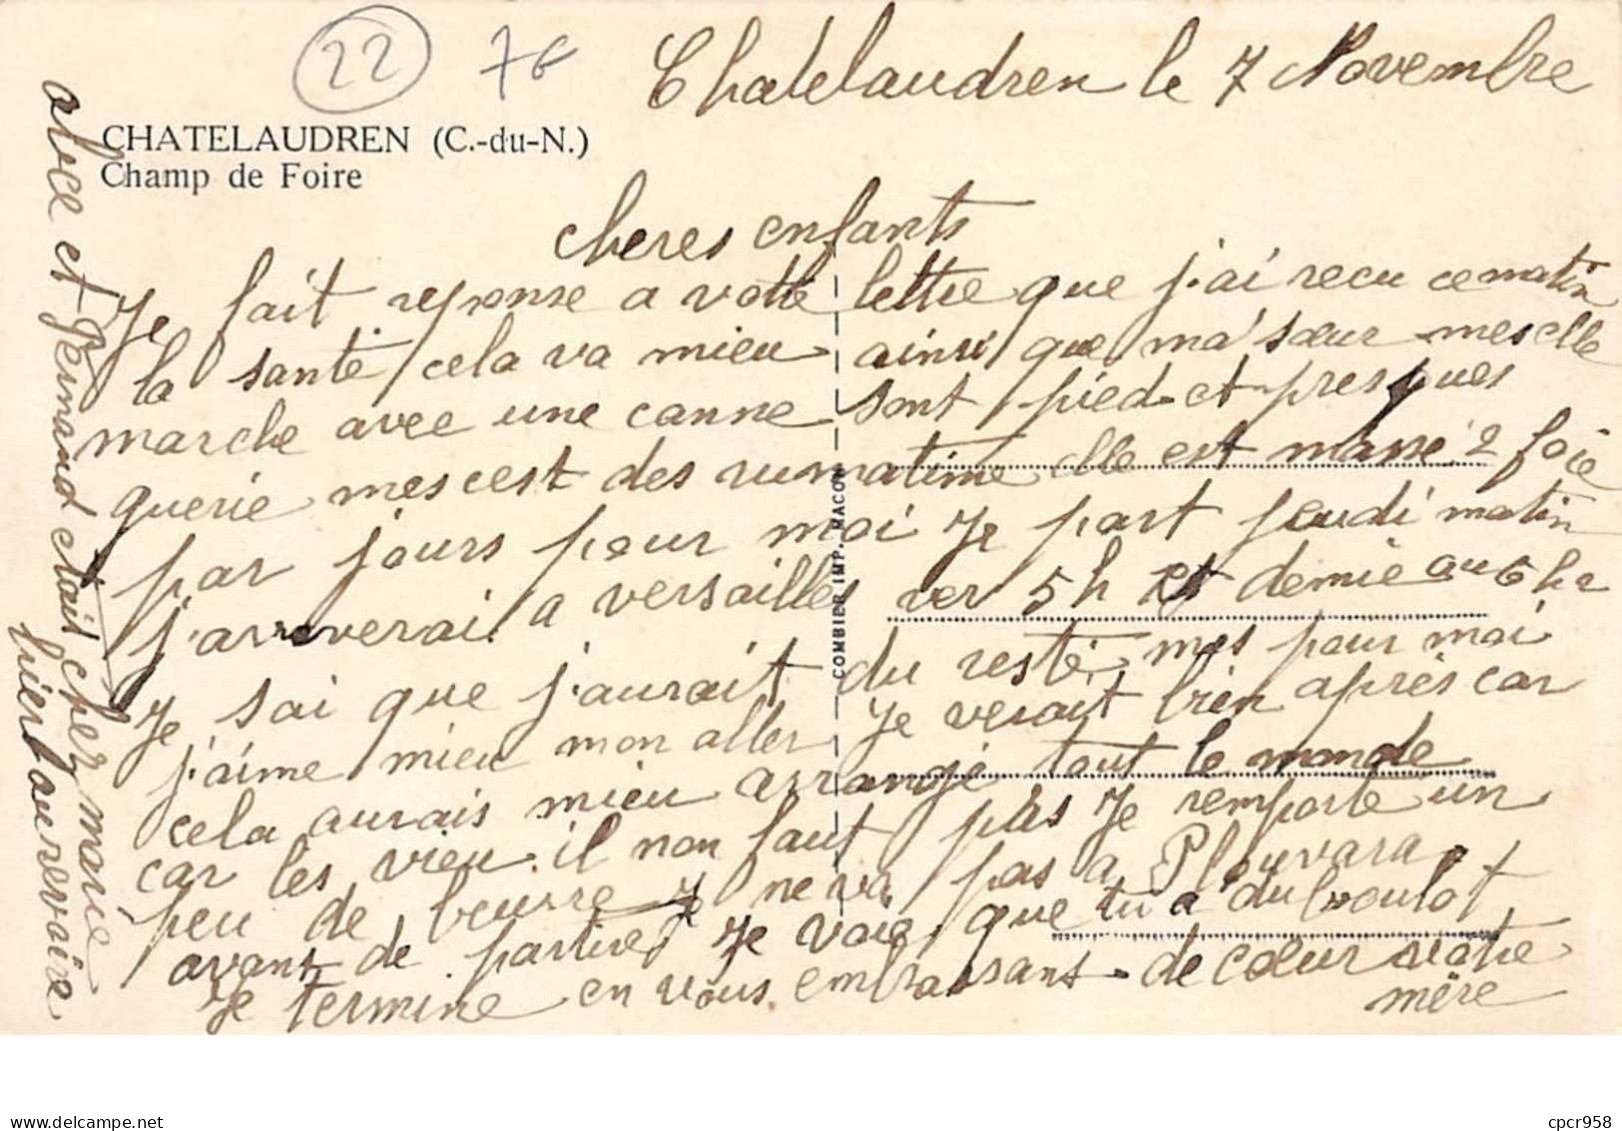 22 76
Chatelaudren le 7 Novembre
CHATELAUDREN (C.-du-N.)
Champ de Foire
cheres enfants
Je fait reponse a votre lettre que j'ai recu ce matin
la santé cela va mieu ainsi que ma sœur mes elle
marche avec une canne sont pied et presques
guerie mes cest des rumatime elle est massé 2 foie
par jours pour moi Je part jeudi matin
j'arriverai a versailles ver 5h et demie au 6 hr
Je sai que j'aurait du resté mes pour moi
j'aime mieu mon aller Je verait bien après car
cela aurais mieu arrangé tout le monde
car les vieu il non faut pas Je remporte un
peu de beurre Je ne va pas a Plouvara
avant de partire Je voie que tu a du boulot
Je termine en vous embrassant de cœur votre
mère
alice et Fernand etait chez marie
hier au revoire
COMBIER IMP. MACON
delcampe.net
cpcr958